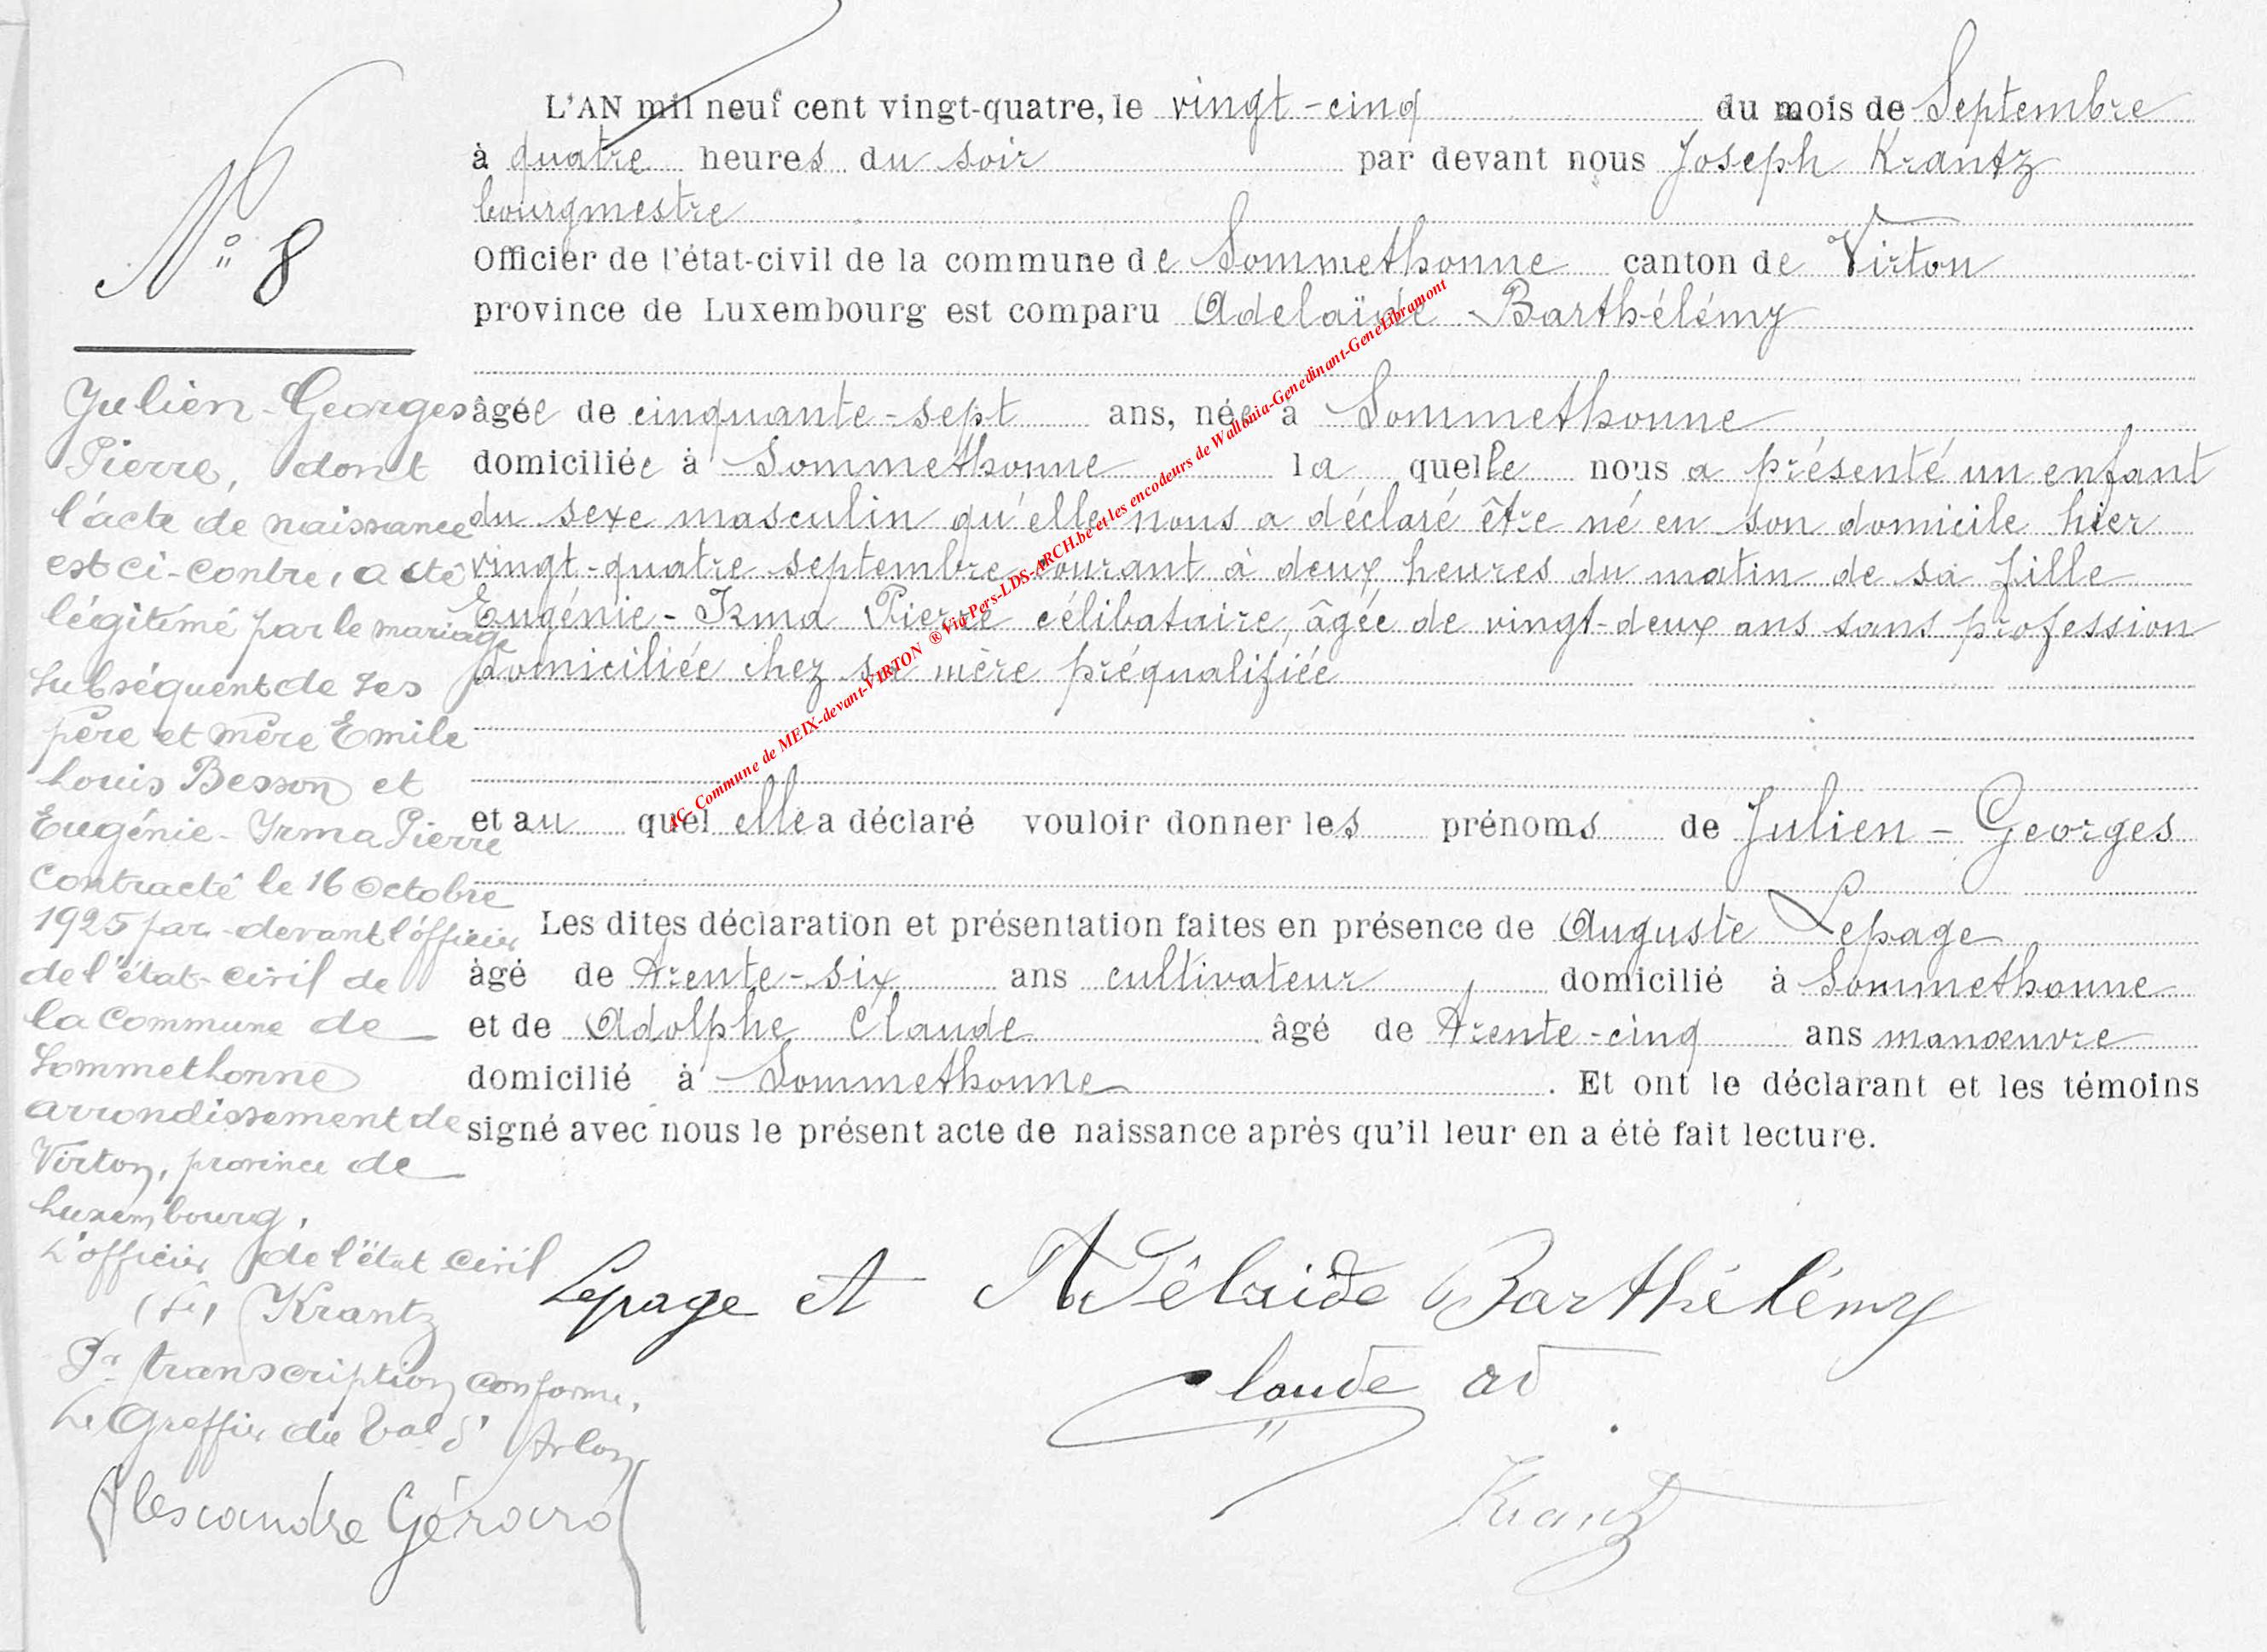 N° 8
L'AN mil neuf cent vingt-quatre, le vingt-cinq du mois de Septembre
à quatre heures du soir par devant nous Joseph Krantz
bourgmestre
Officier de l'état-civil de la commune de Sommethonne canton de Virton
province de Luxembourg est comparu Adelaïde Barthélémy
âgée de cinquante-sept ans, née à Sommethonne
domiciliée à Sommethonne la quelle nous a présenté un enfant
du sexe masculin qu'elle nous a déclaré être né en son domicile hier
vingt-quatre septembre courant à deux heures du matin de sa fille
Eugénie-Irma Pierre célibataire, âgée de vingt-deux ans sans profession
domiciliée chez sa mère préqualifiée
et au quel elle a déclaré vouloir donner les prénoms de Julien-Georges
Les dites déclaration et présentation faites en présence de Auguste Lepage
âgé de trente-six ans cultivateur domicilié à Sommethonne
et de Adolphe Claude âgé de trente-cinq ans manœuvre
domicilié à Sommethonne. Et ont le déclarant et les témoins
signé avec nous le présent acte de naissance après qu'il leur en a été fait lecture.
Lepage et Adélaide Barthélémy
Claude ad
Krantz
Julien-Georges
Pierre, dont
l'acte de naissance
est ci-contre, a été
légitimé par le mariage
subséquent de ses
père et mère Emile
Louis Besson et
Eugénie-Irma Pierre
contracté le 16 octobre
1925 par-devant l'officier
de l'état-civil de
la commune de
Sommethonne
arrondissement de
Virton, province de
Luxembourg.
L'officier de l'état civil
(sé) Krantz
Pr transcription conforme,
Le Greffier du Bal d'Arlon
Alexandre Gérard
AC. Commune de MEIX-devant-VIRTON ® Via Pers-LDS-ARCH.be et les encodeurs de Wallonia-Genedinant-GeneLibramont